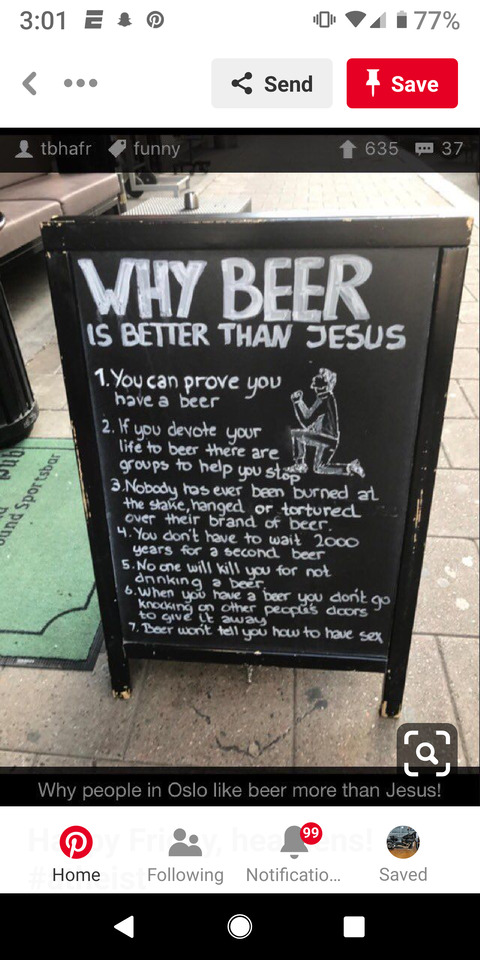 3:01
77%
Send
Save
tbhafr
funny
635
37
WHY BEER
IS BETTER THAN JESUS
1. You can prove you
have a beer
2. If you devote your
life to beer there are
groups to help you stop
3. Nobody has ever been burned at
the stake, hanged, or tortured
over their brand of beer.
4. You don't have to wait 2000
years for a second beer
5. No one will kill you for not
drinking a beer.
6. When you have a beer you don't go
knocking on other people's doors
to give it away
7. Beer won't tell you how to have sex
Pub
und Sportsbar
Why people in Oslo like beer more than Jesus!
99
Home
Following
Notificatio...
Saved